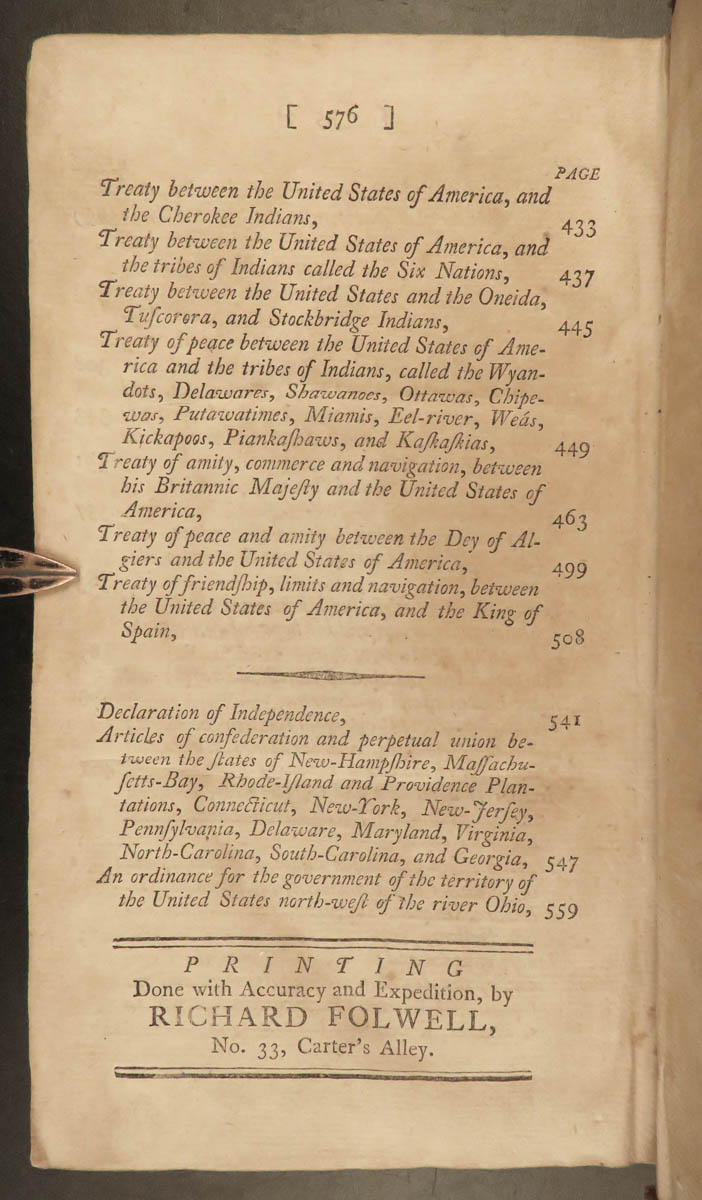 [ 576 ]
PAGE
Treaty between the United States of America, and
the Cherokee Indians, 433
Treaty between the United States of America, and
the tribes of Indians called the Six Nations, 437
Treaty between the United States and the Oneida,
Tuſcorora, and Stockbridge Indians, 445
Treaty of peace between the United States of Ame-
rica and the tribes of Indians, called the Wyan-
dots, Delawares, Shawanoes, Ottawas, Chipe-
was, Putawatimes, Miamis, Eel-river, Weás,
Kickapoos, Piankaſhaws, and Kaſkaſkias, 449
Treaty of amity, commerce and navigation, between
his Britannic Majeſty and the United States of
America, 463
Treaty of peace and amity between the Dey of Al-
giers and the United States of America, 499
Treaty of friendſhip, limits and navigation, between
the United States of America, and the King of
Spain, 508
Declaration of Independence, 541
Articles of confederation and perpetual union be-
tween the ſtates of New-Hampſhire, Maſſachu-
ſetts-Bay, Rhode-Iſland and Providence Plan-
tations, Connecticut, New-York, New-Jerſey,
Pennſylvania, Delaware, Maryland, Virginia,
North-Carolina, South-Carolina, and Georgia, 547
An ordinance for the government of the territory of
the United States north-weſt of the river Ohio, 559
PRINTING
Done with Accuracy and Expedition, by
RICHARD FOLWELL,
No. 33, Carter's Alley.